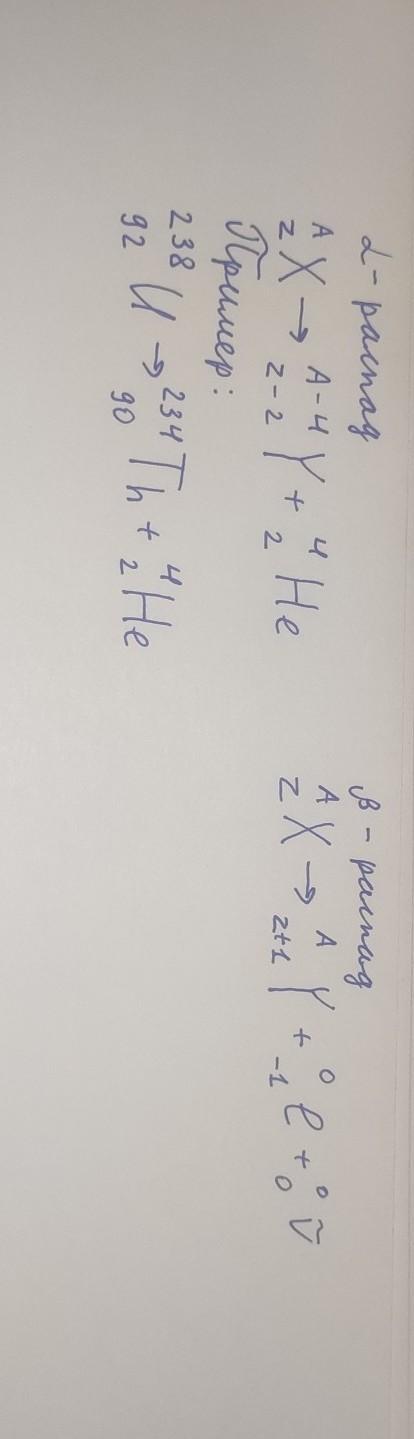 α-распад
ᴬ_Z X → ᴬ⁻⁴_Z-2 Y + ⁴₂He
Пример:
²³⁸₉₂U → ²³⁴₉₀Th + ⁴₂He
β-распад
ᴬ_Z X → ᴬ_Z+1 Y + ⁰₋₁e + ⁰₀ṽ